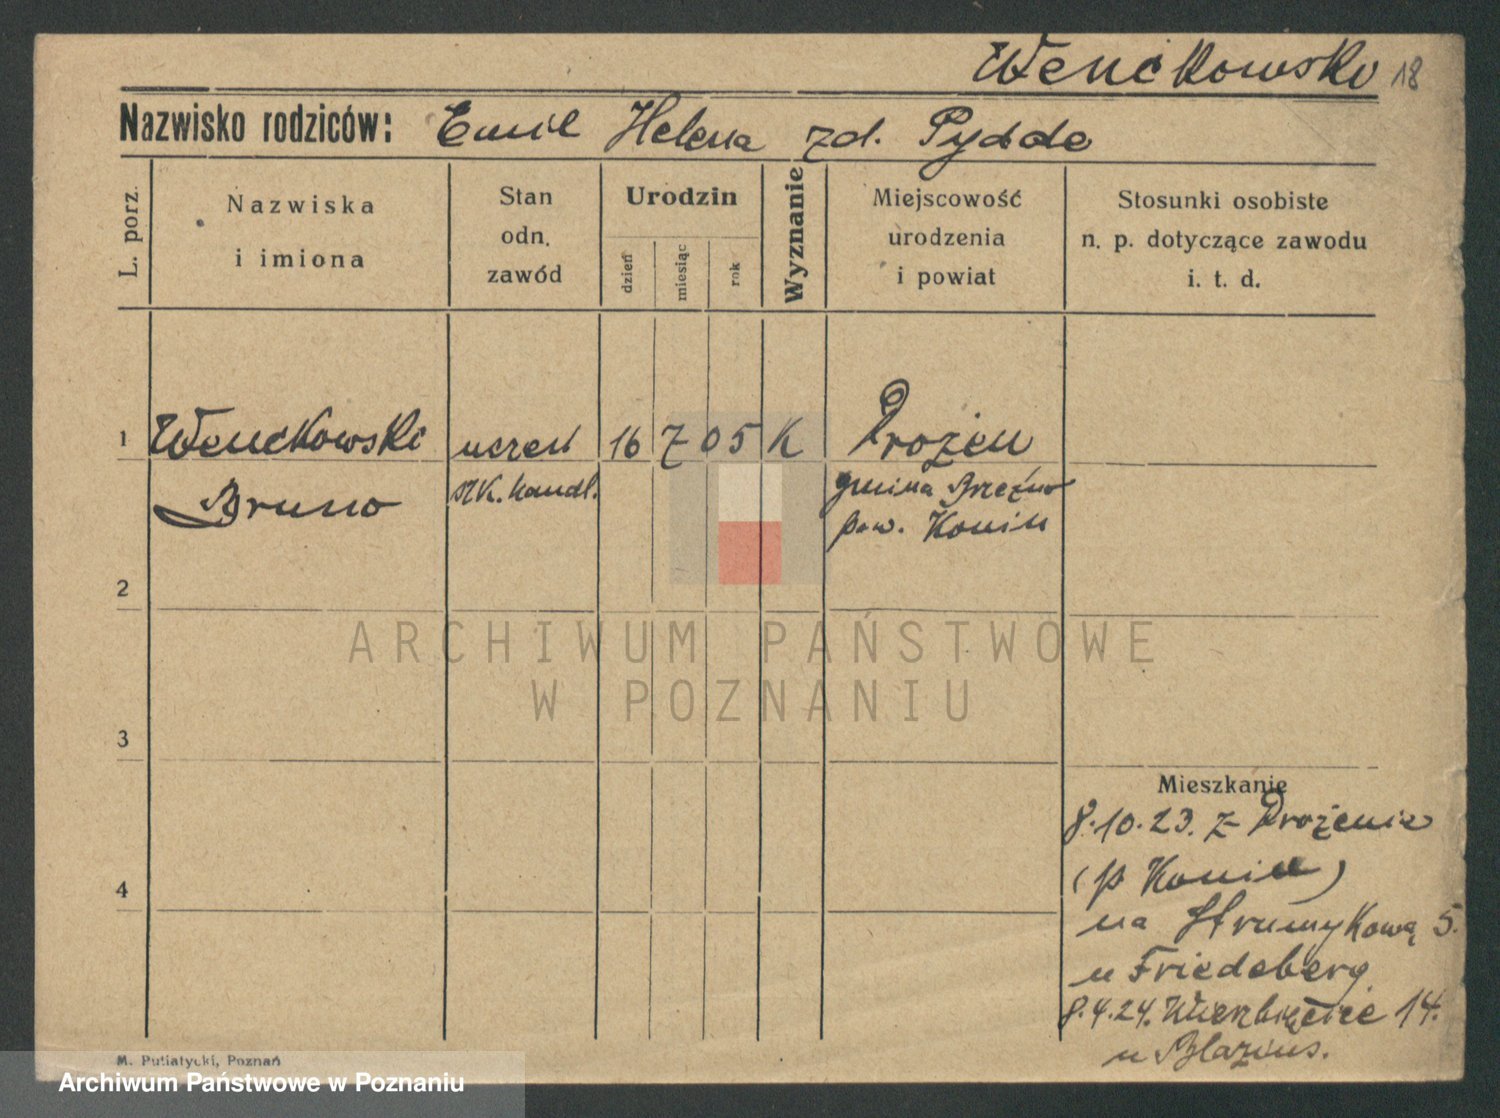 Wenckowski 18
Nazwisko rodziców: Emil Helena zd. Pydde
L. porz.
Nazwiska
i imiona
Stan
odn.
zawód
Urodzin
dzień
miesiąc
rok
Wyznanie
Miejscowość
urodzenia
i powiat
Stosunki osobiste
n. p. dotyczące zawodu
i. t. d.
1 Wenckowski uczeń 16 7 05 K Drożen
Bruno szk. handl. gmina Brzeźno
pow. Konin
2
3
4
Mieszkanie
8.10.23. z Drożenia
(p Konin)
na Strumykową 5.
u Friedeberg
8.4.24. Wierzbięcice 14.
u Blazius.
M. Putiatycki, Poznań
ARCHIWUM PAŃSTWOWE
W POZNANIU
Archiwum Państwowe w Poznaniu